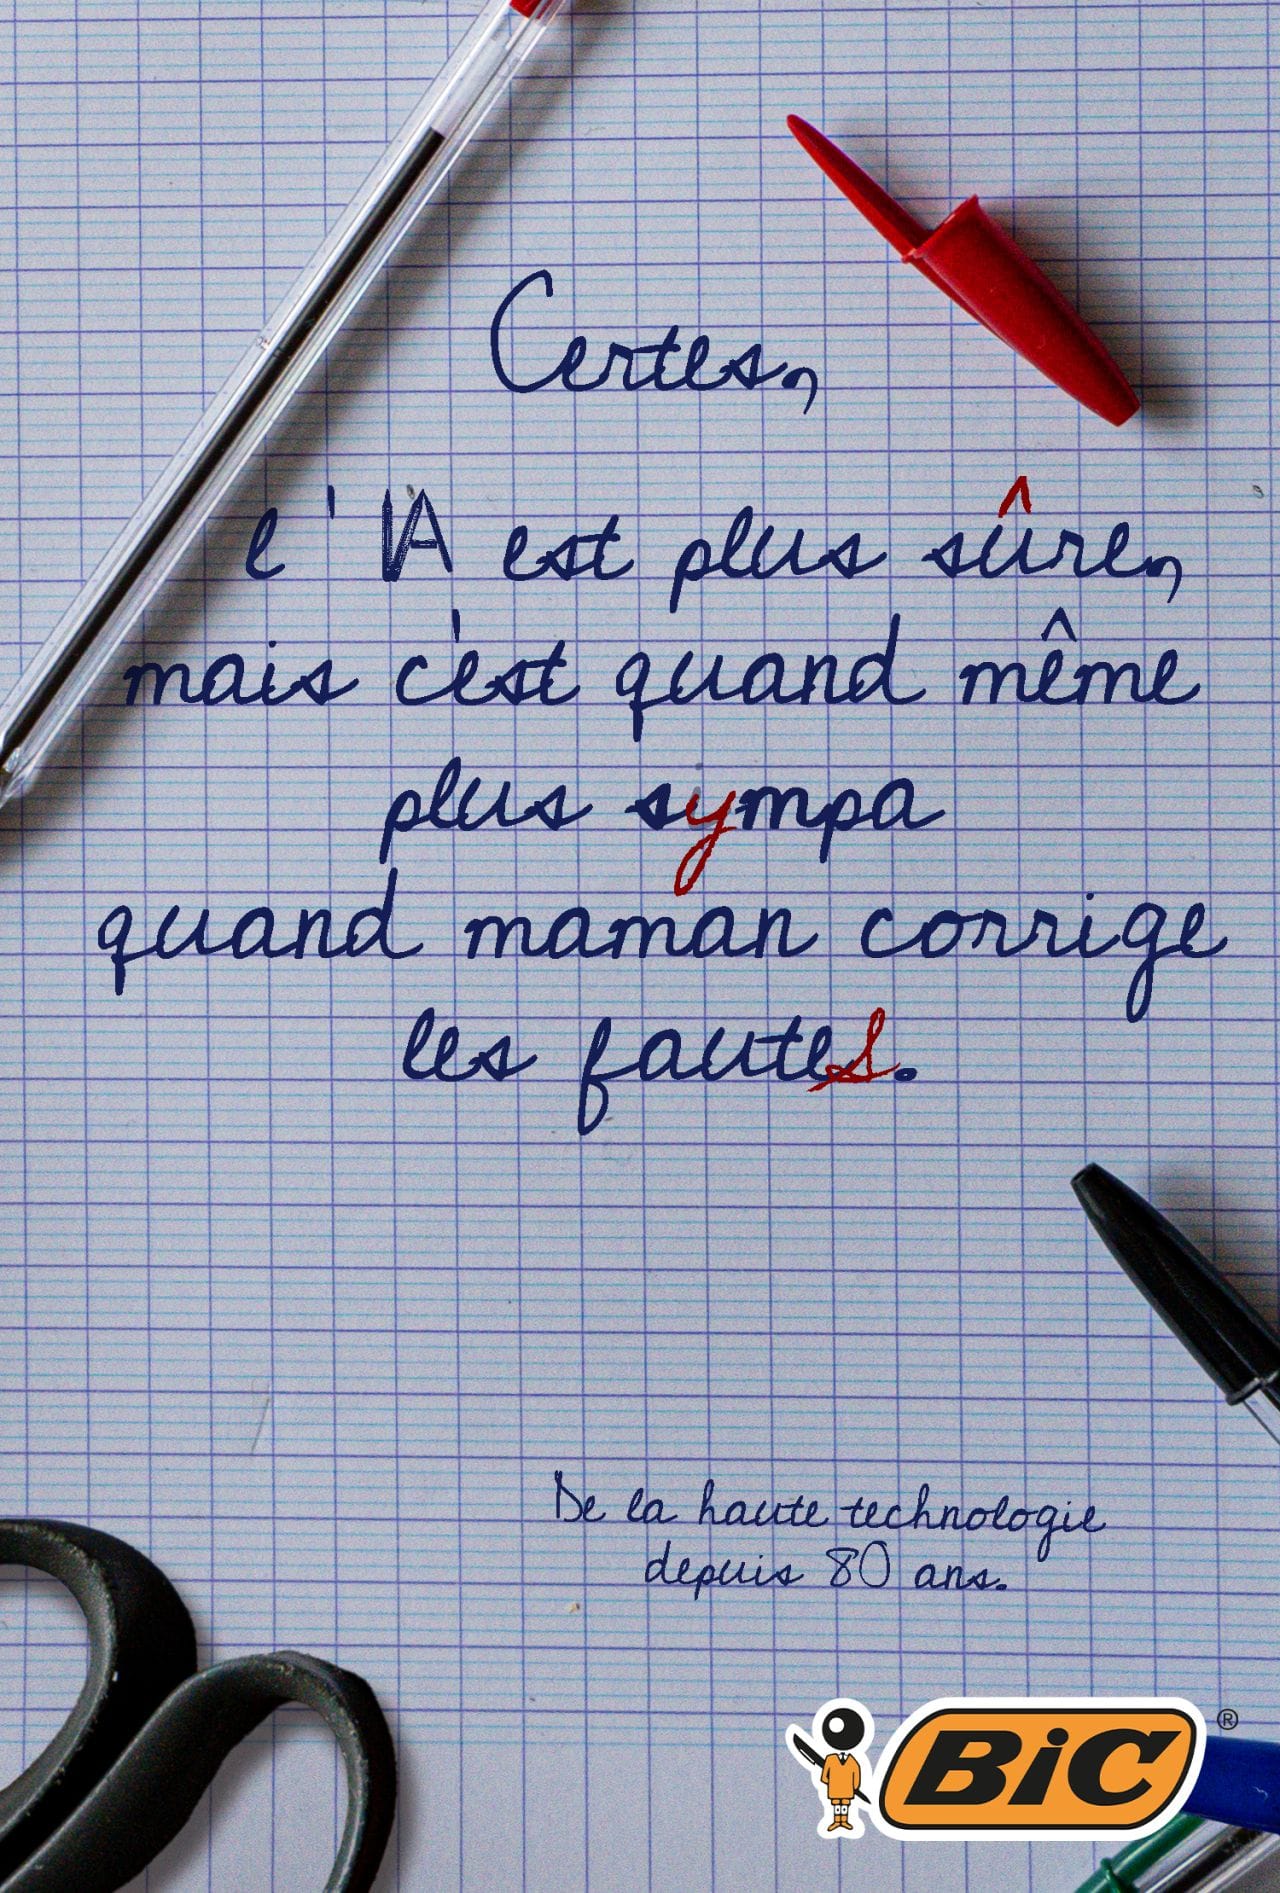 Certes,
l'IA est plus sûre,
mais c'est quand même
plus sympa
quand maman corrige
les fautes.
De la haute technologie
depuis 80 ans.
BiC®